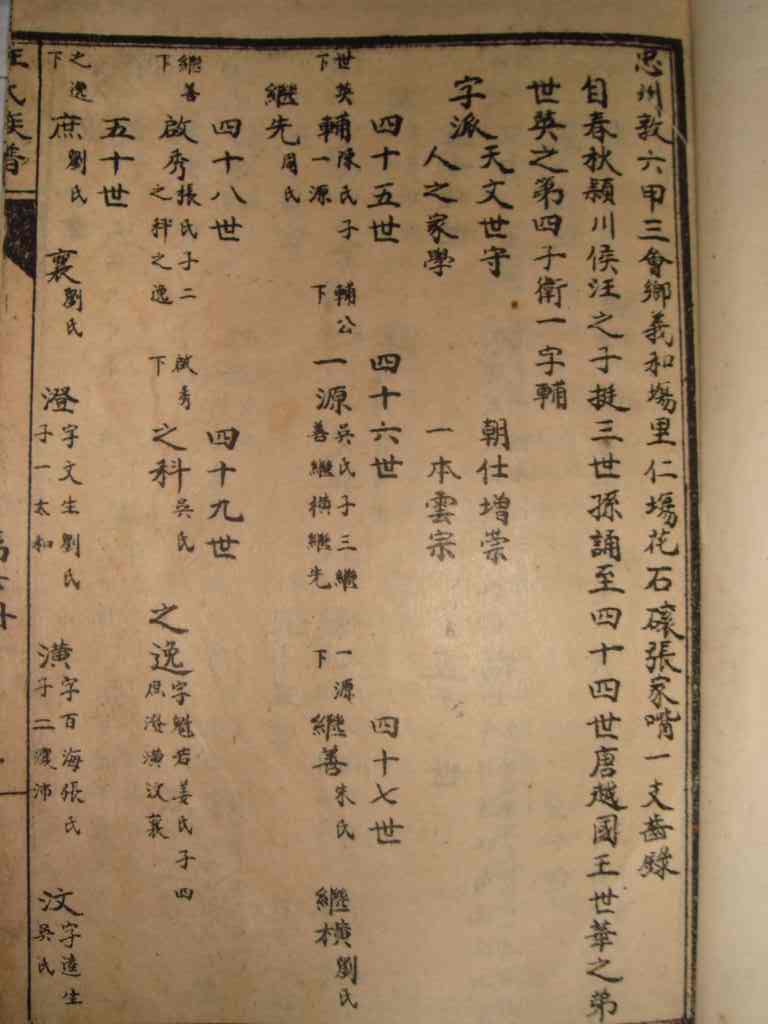 忠州敦六甲三會鄉義和塲里仁塲花石磉張家嘴一支齒錄
自春秋潁川侯汪之子挺三世孫誦至四十四世唐越國王世華之弟
世英之第四子衛一字輔
字派 天文世守 朝仕增榮
人之家學 一本雲宗
四十五世 四十六世 四十七世
世英下 輔 陳氏子一源 輔公下 一源 吳氏子三繼善繼橫繼先 一源下 繼善 朱氏 繼橫 劉氏
繼先 周氏
四十八世 四十九世
繼善下 啟秀 張氏子二之科之逸 啟秀下 之科 吳氏 之逸 字魁若姜氏子四庶澄潢汶襄
五十世
之逸下 庶 劉氏 襄 劉氏 澄 字文生劉氏子一太和 潢 字百海張氏子二 沛 汶 字遠生吳氏
汪氏族譜